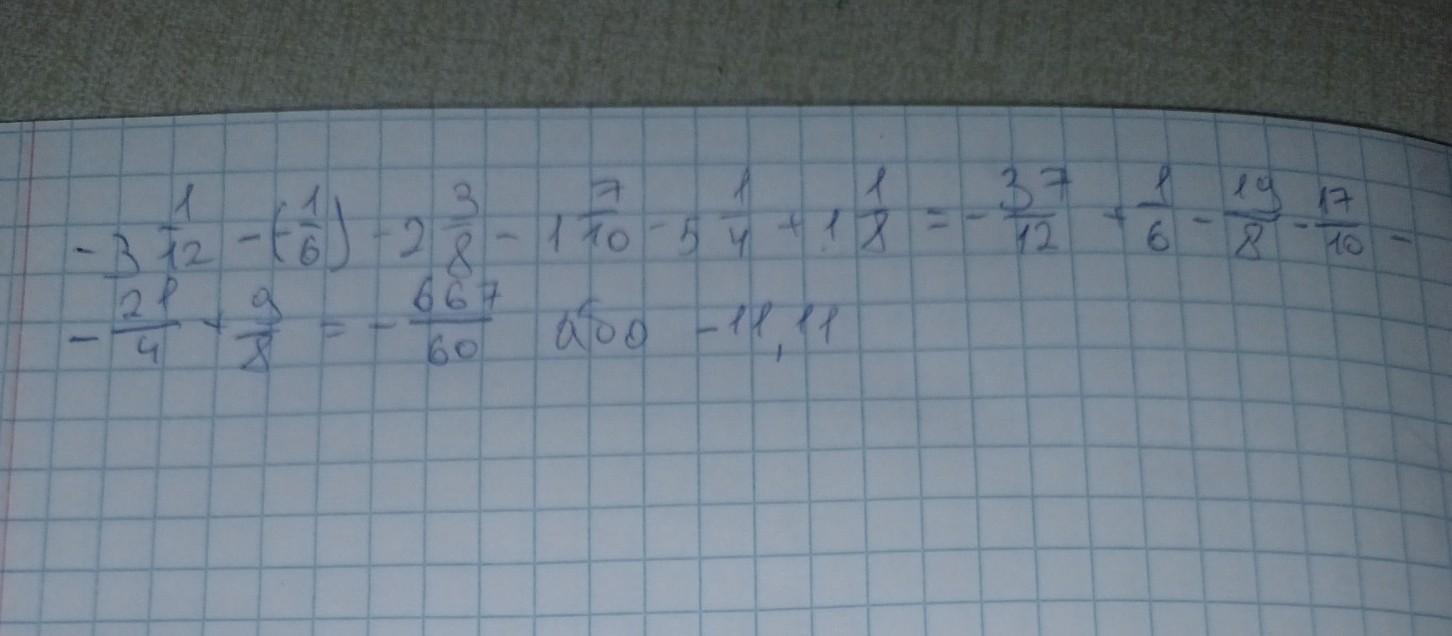 -3 1/12 - (-1/6) - 2 3/8 - 1 7/10 - 5 1/4 + 1 1/8 = - 37/12 + 1/6 - 19/8 - 17/10 -
- 21/4 + 9/8 = - 667/60 або -11,11